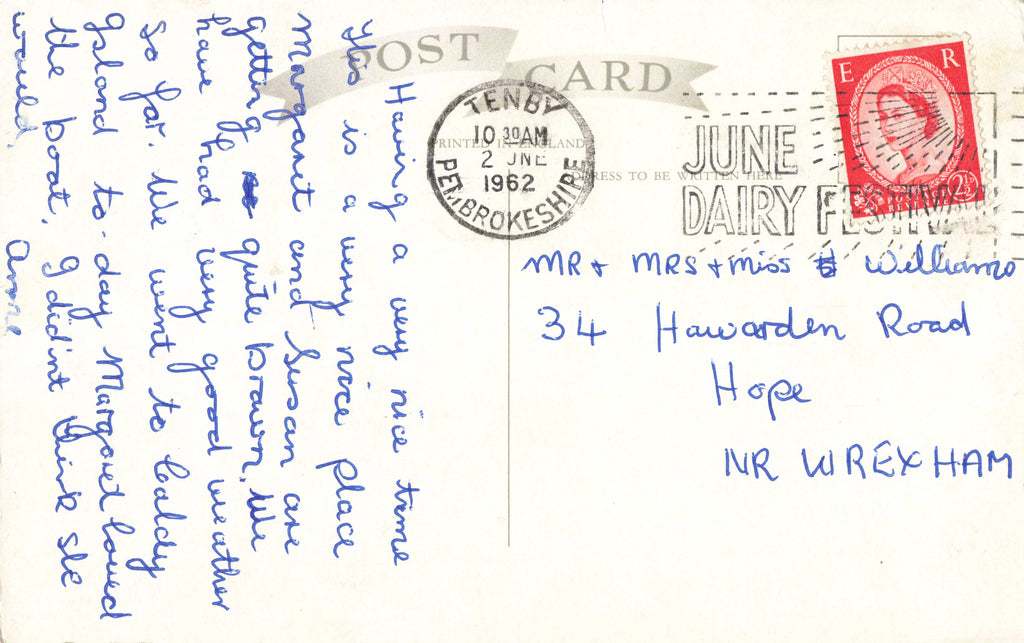 POST CARD
PRINTED IN ENGLAND
ADDRESS TO BE WRITTEN HERE
TENBY
10 30 AM
2 JNE
1962
PEMBROKESHIRE
JUNE
DAIRY FESTIVAL
E R
2½D
Having a very nice time
This is a very nice place
Margaret and Susan are
getting quite brown. We
have had very good weather
so far. We went to Caldy
Island to-day Margaret loved
the boat, I did'nt think she
would. Anne
MR + MRS + miss Williams
34 Hawarden Road
Hope
NR WREXHAM